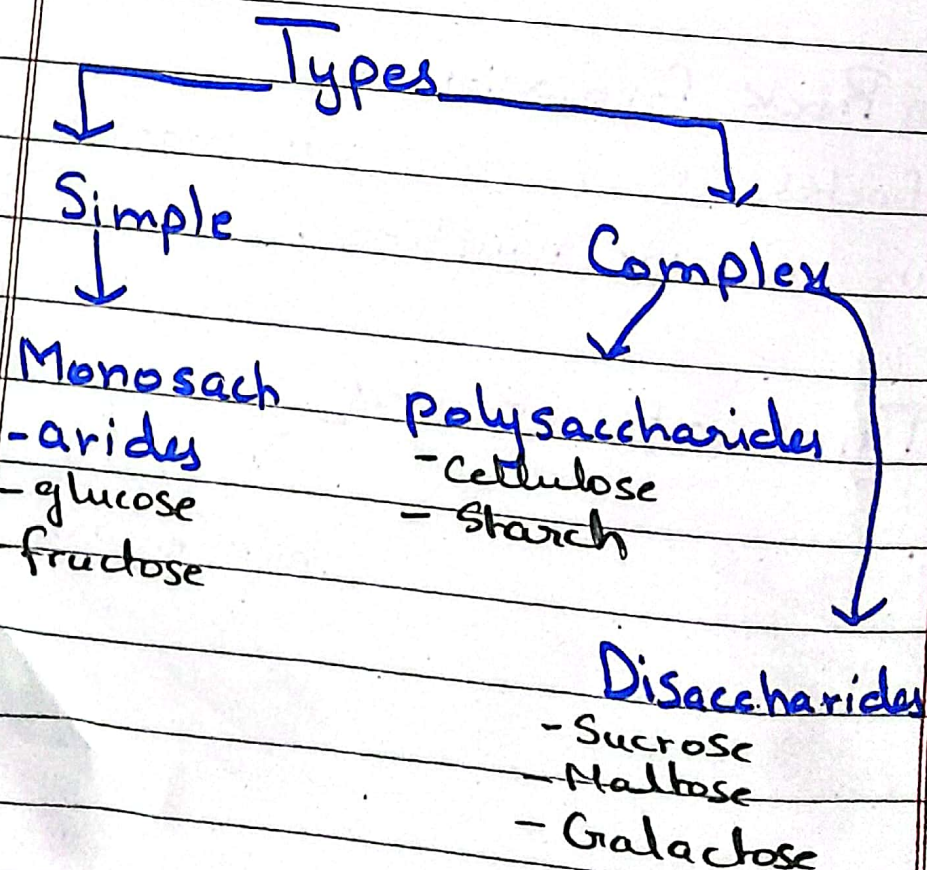 Types
Simple
Complex
Monosach
-arides
- glucose
fructose
polysaccharides
- Cellulose
- Starch
Disaccharides
- Sucrose
- Maltose
- Galactose